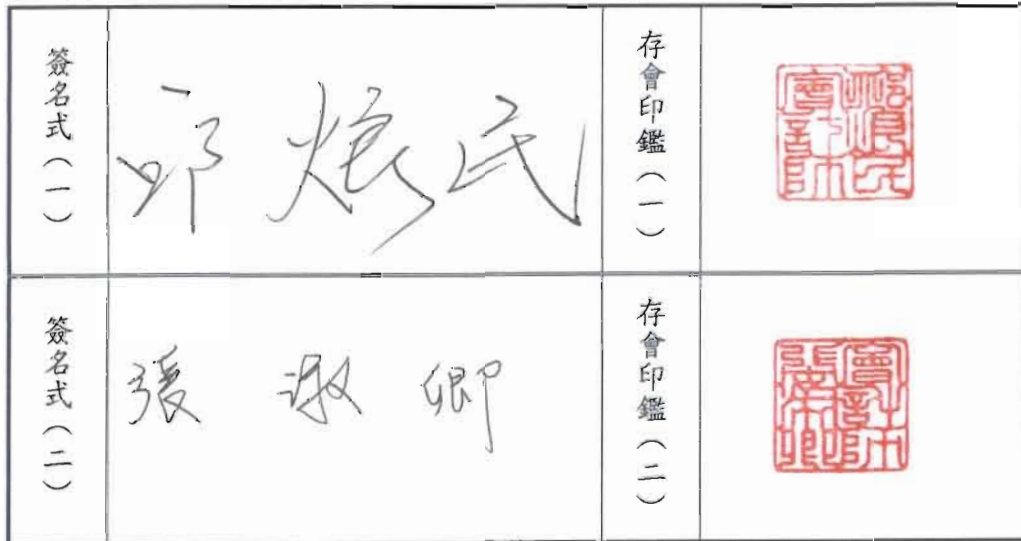 簽名式(一)
邱 烺 民
存會印鑑(一)
簽名式(二)
張 淑 卿
存會印鑑(二)